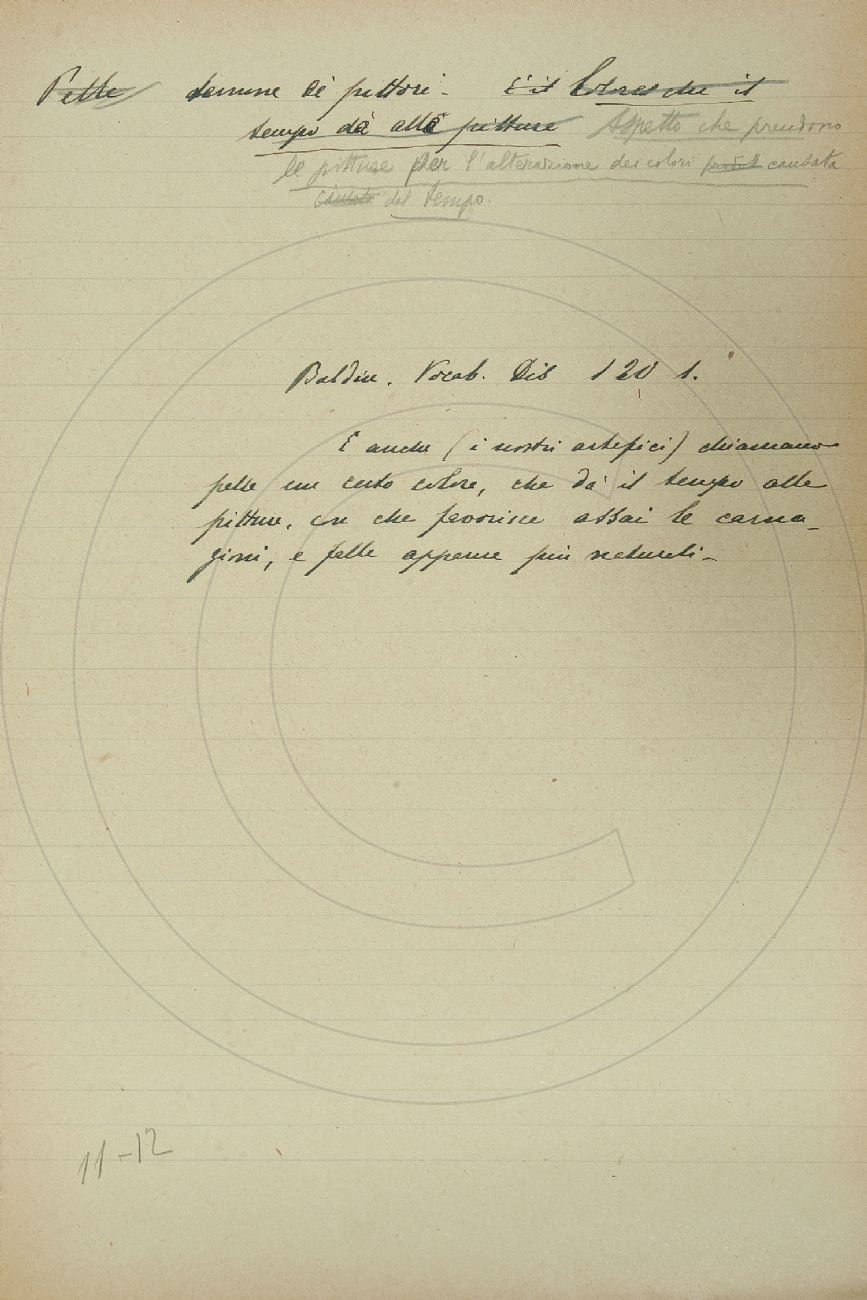 Pelle termine de' pittori. È il Colore che il
tempo dà alle pitture Aspetto che prendono
le pitture per l'alterazione dei colori causata
causata dal tempo.
Baldin. Vocab. Dis 120 1.
E anche (i nostri artefici) chiamano
pelle un certo colore, che dà il tempo alle
pitture, che favorisce assai le carna-
gioni, e falle apparire più naturali-
11-12